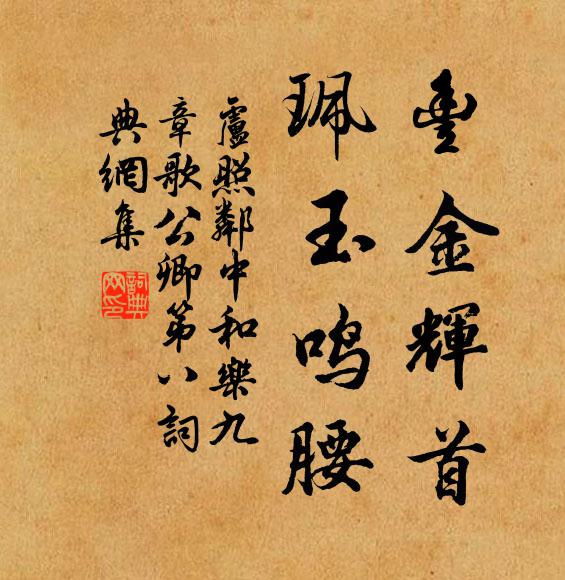 豐金輝首
珮玉鳴腰
盧照鄰中和樂九
章歌公卿第八詞
典網集
詞典
网印